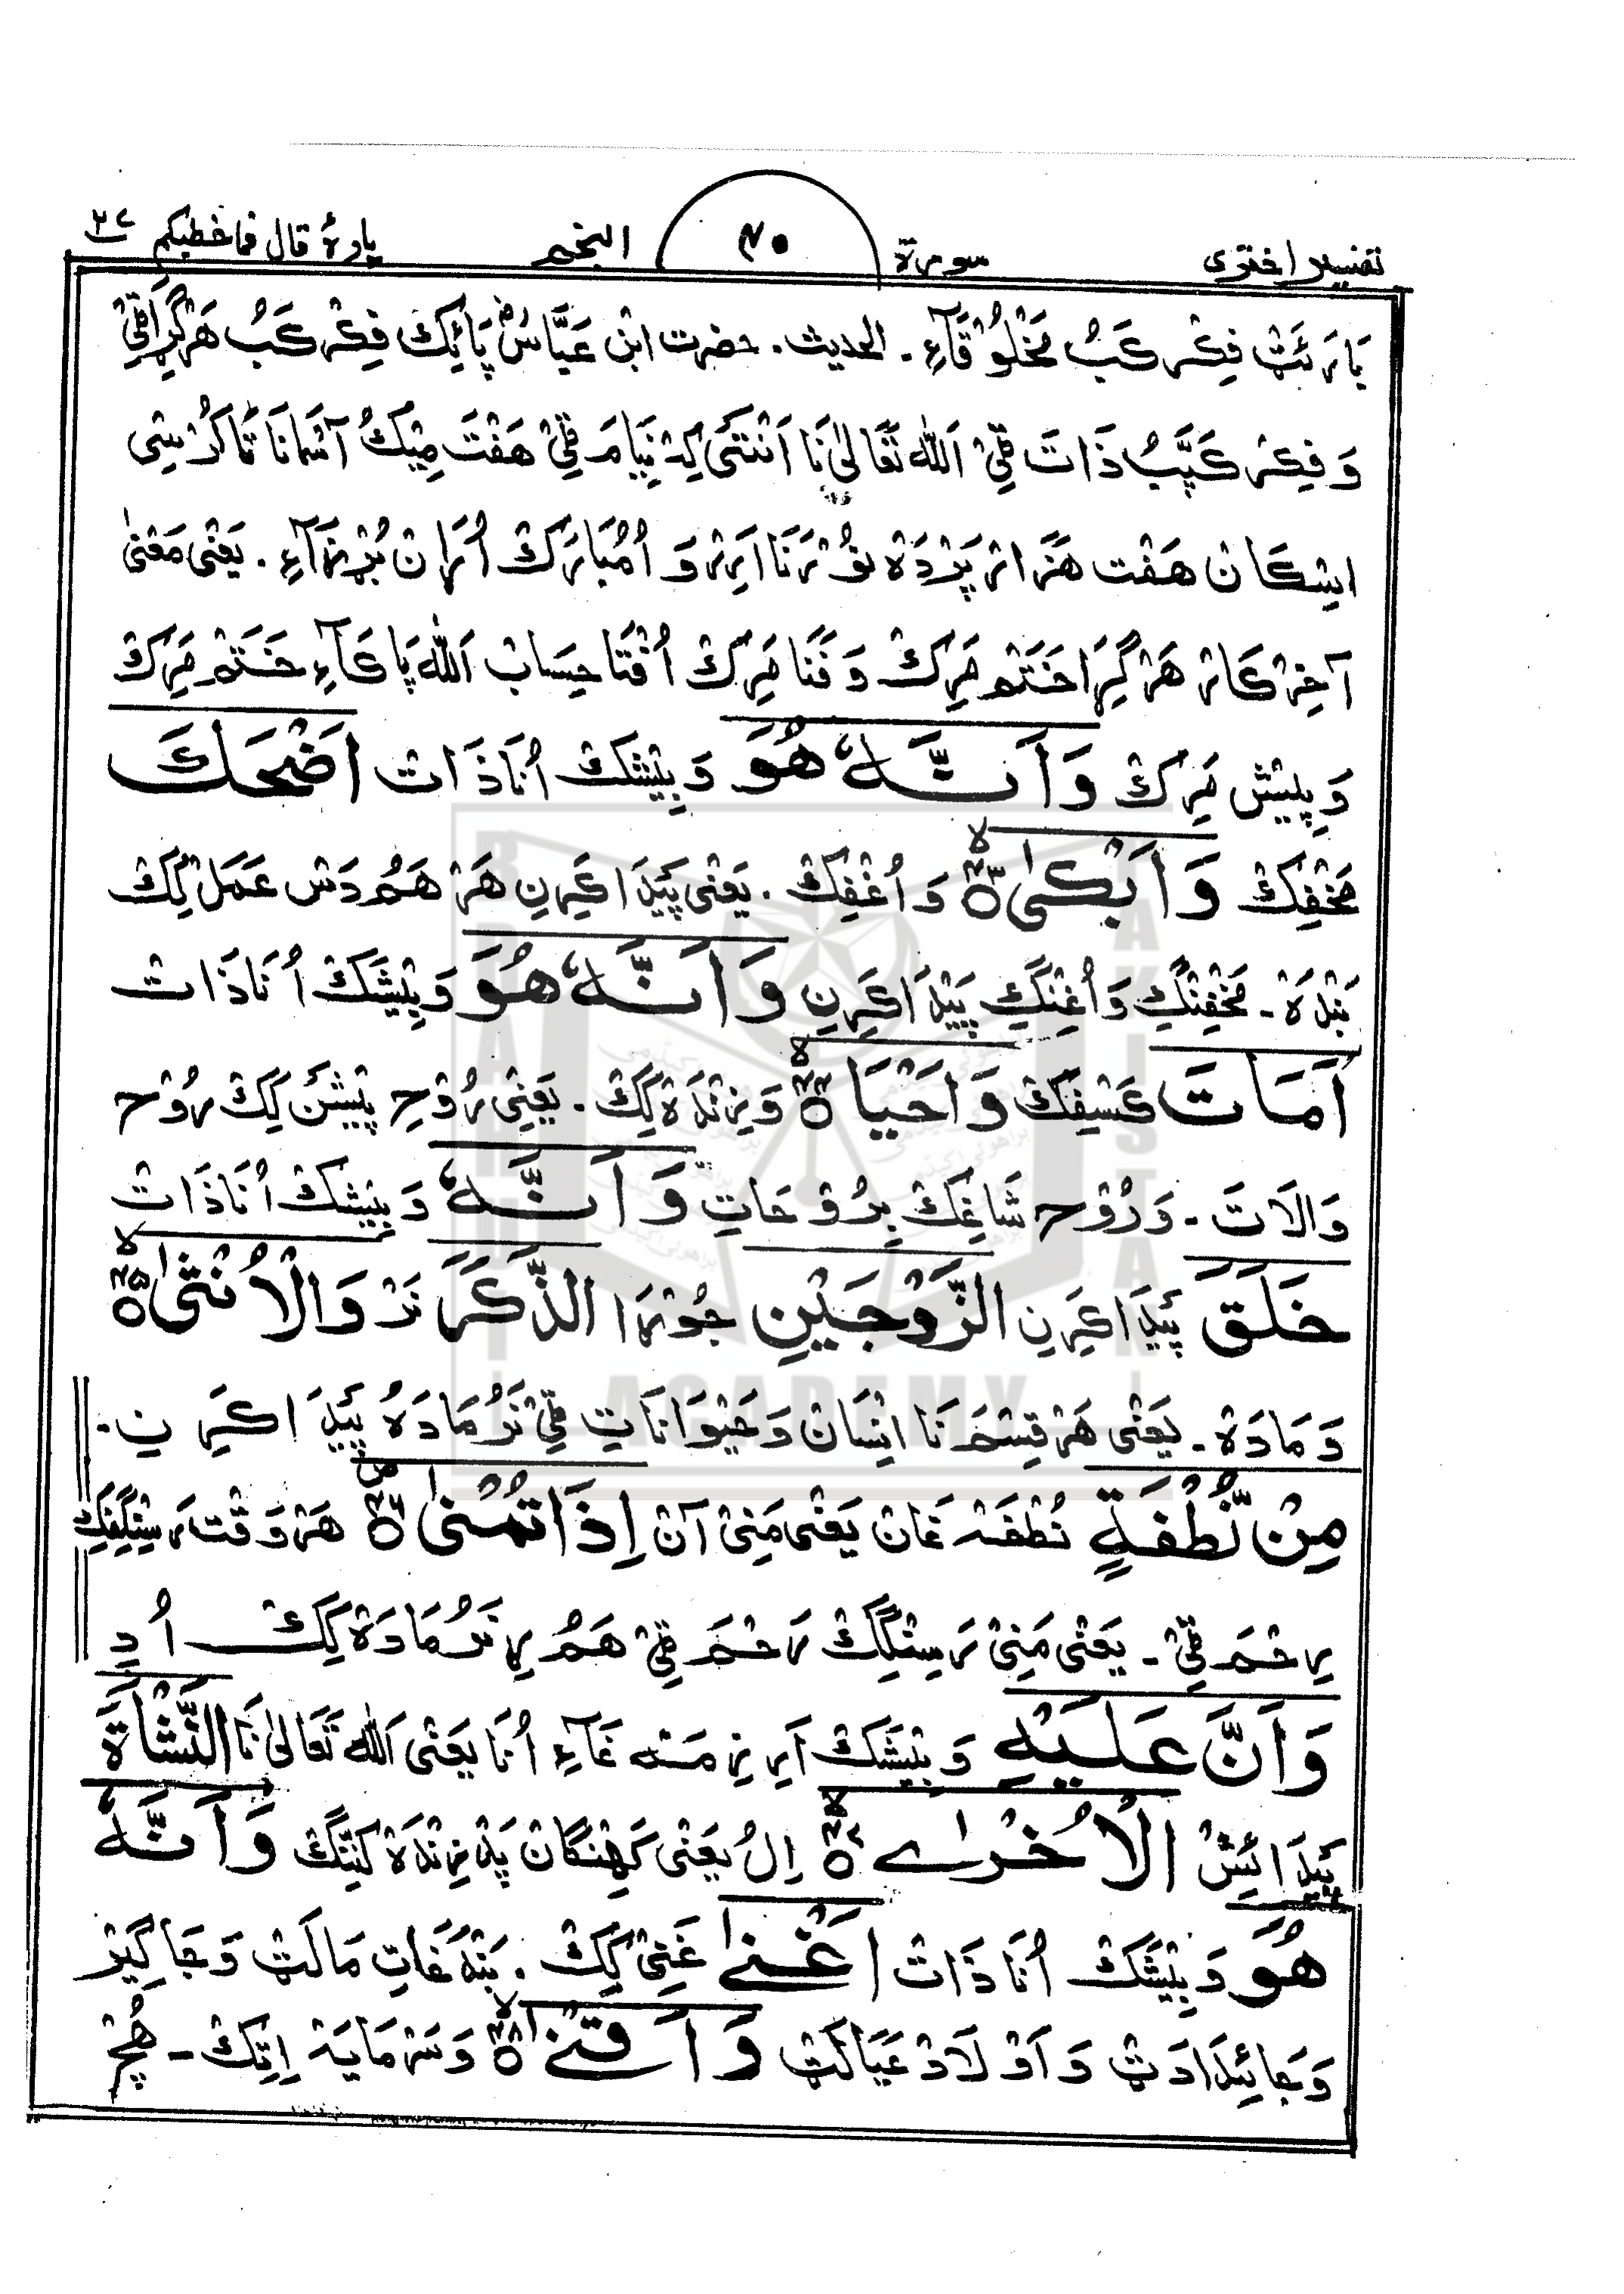 تفسیر اختری سورۃ ۴۰ النجم پارۂ قال فما خطبکم ۲۷
بَارَئَٹ فِکْر کَبُ مَخْلُوْقَآءِ۔ الحدیث۔ حضرت ابْنِ عَبَّاسؓ پَائِکْ فِکْر کَبُ هَرْگِرَاقِیْ
وَ فِکْر کَپَّبُ ذَاتَ فِیْ اَللّٰه تَعَالیٰ نَا اَنْتَئَ کِہْ نِیَامَ فِیْ هَفْتَ مِیْکُ آسْمَانَا تَاکُرْسِیْ
اِسْکَانْ هَفْت هَزَار پَرْدَهْ نُوْرْنَا اَرِرْ وَ اُمُبَارَکْ اُرَانْ بُرْزَآءِ۔ یَعْنٰی مَعْنیٰ
آخِرْکَارْ هَرْگِرَا خَتَمْ مَرِکْ وَ فَنَا مَرِکْ اُفْتَا حِسَابْ اَللّٰه پَاکَآءِ خَتَمْ مَرِکْ
وَپِیْش مَرِکْ وَاَنَّهٗ هُوَ وَ بِیْشَکْ اُنَا ذَاتْ اَضْحَكَ
مَخْفِکْ وَاَبْكٰىۙ۴۳ وَ اُغْفِکْ۔ یَعْنٰی پَیْدَا کَرِنِ هَرْ هَمُدَسْ عَمَلْ کِکْ
بَنْدَهْ۔ مَخْفِنْگِ وَ اُغِنْگِ پَیْدَا کَرِنِ وَاَنَّهٗ هُوَ وَ بِیْشَکْ اُنَا ذَاتْ
اَمَاتَ کَسْفِکْ وَاَحْيَاۙ۴۴ وَ زِنْدَهْ کِکْ۔ یَعْنٰی رُوْحِ پِیْشَنْ کِکْ رُوْح
وَالَاتَ۔ وَ رُوْح شَاغِکْ بِرُوْحَاتِ وَاَنَّهٗ وَ بِیْشَکْ اُنَا ذَاتْ
خَلَقَ پَیْدَا کَرِنِ الزَّوْجَيْنِ جُوْڑَا الذَّكَرَ نَرْ وَالْاُنْثٰىۙ۴۵
وَ مَادَهْ۔ یَعْنٰی هَرْ قِسْمَ نَا اِنْسَانْ وَ حَیْوَانَاتِ فِیْ نَرُ مَادَهُ پَیْدَا کَرِنِ۔
مِنْ نُّطْفَةٍ نُطْفَہ غَانْ یَعْنٰی مَنِیْ آنْ اِذَا تُمْنٰى۪۴۶ هَرْ وَقْت رَسِنْگِفِکِ
رِحْمَ فِیْ۔ یَعْنٰی مَنِیْ رَسِنْگِکْ رَحْمَ فِیْ هَمُرِ نَرُ مَادَهْ کِکْ اُدِ
وَاَنَّ عَلَيْهِ وَ بِیْشَکْ اَرِ ذِمَّہ غَآءِ اُنَا یَعْنٰی اَللّٰه تَعَالیٰ نَا النَّشْاَةَ
پَیْدَائِشْ الْاُخْرٰىۙ۴۷ اِلُ یَعْنٰی کَهِنْگَانْ پَدْ زِنْدَهْ کَنِنْگ وَاَنَّهٗ
هُوَ وَ بِیْشَکْ اُنَا ذَاتْ اَغْنٰى غَنِیْ کِکْ۔ بَنْدَغَاتِ مَالَٹْ وَ جَاگِیْر
وَ جَائِیْدَادَٹْ وَ اَوْلَادْ عَیَالَٹْ وَاَقْنٰىۙ۴۸ وَ سَرْمَایَہْ اِتِکْ۔ هُچْ
BRAHUI ACADEMY PAKISTAN